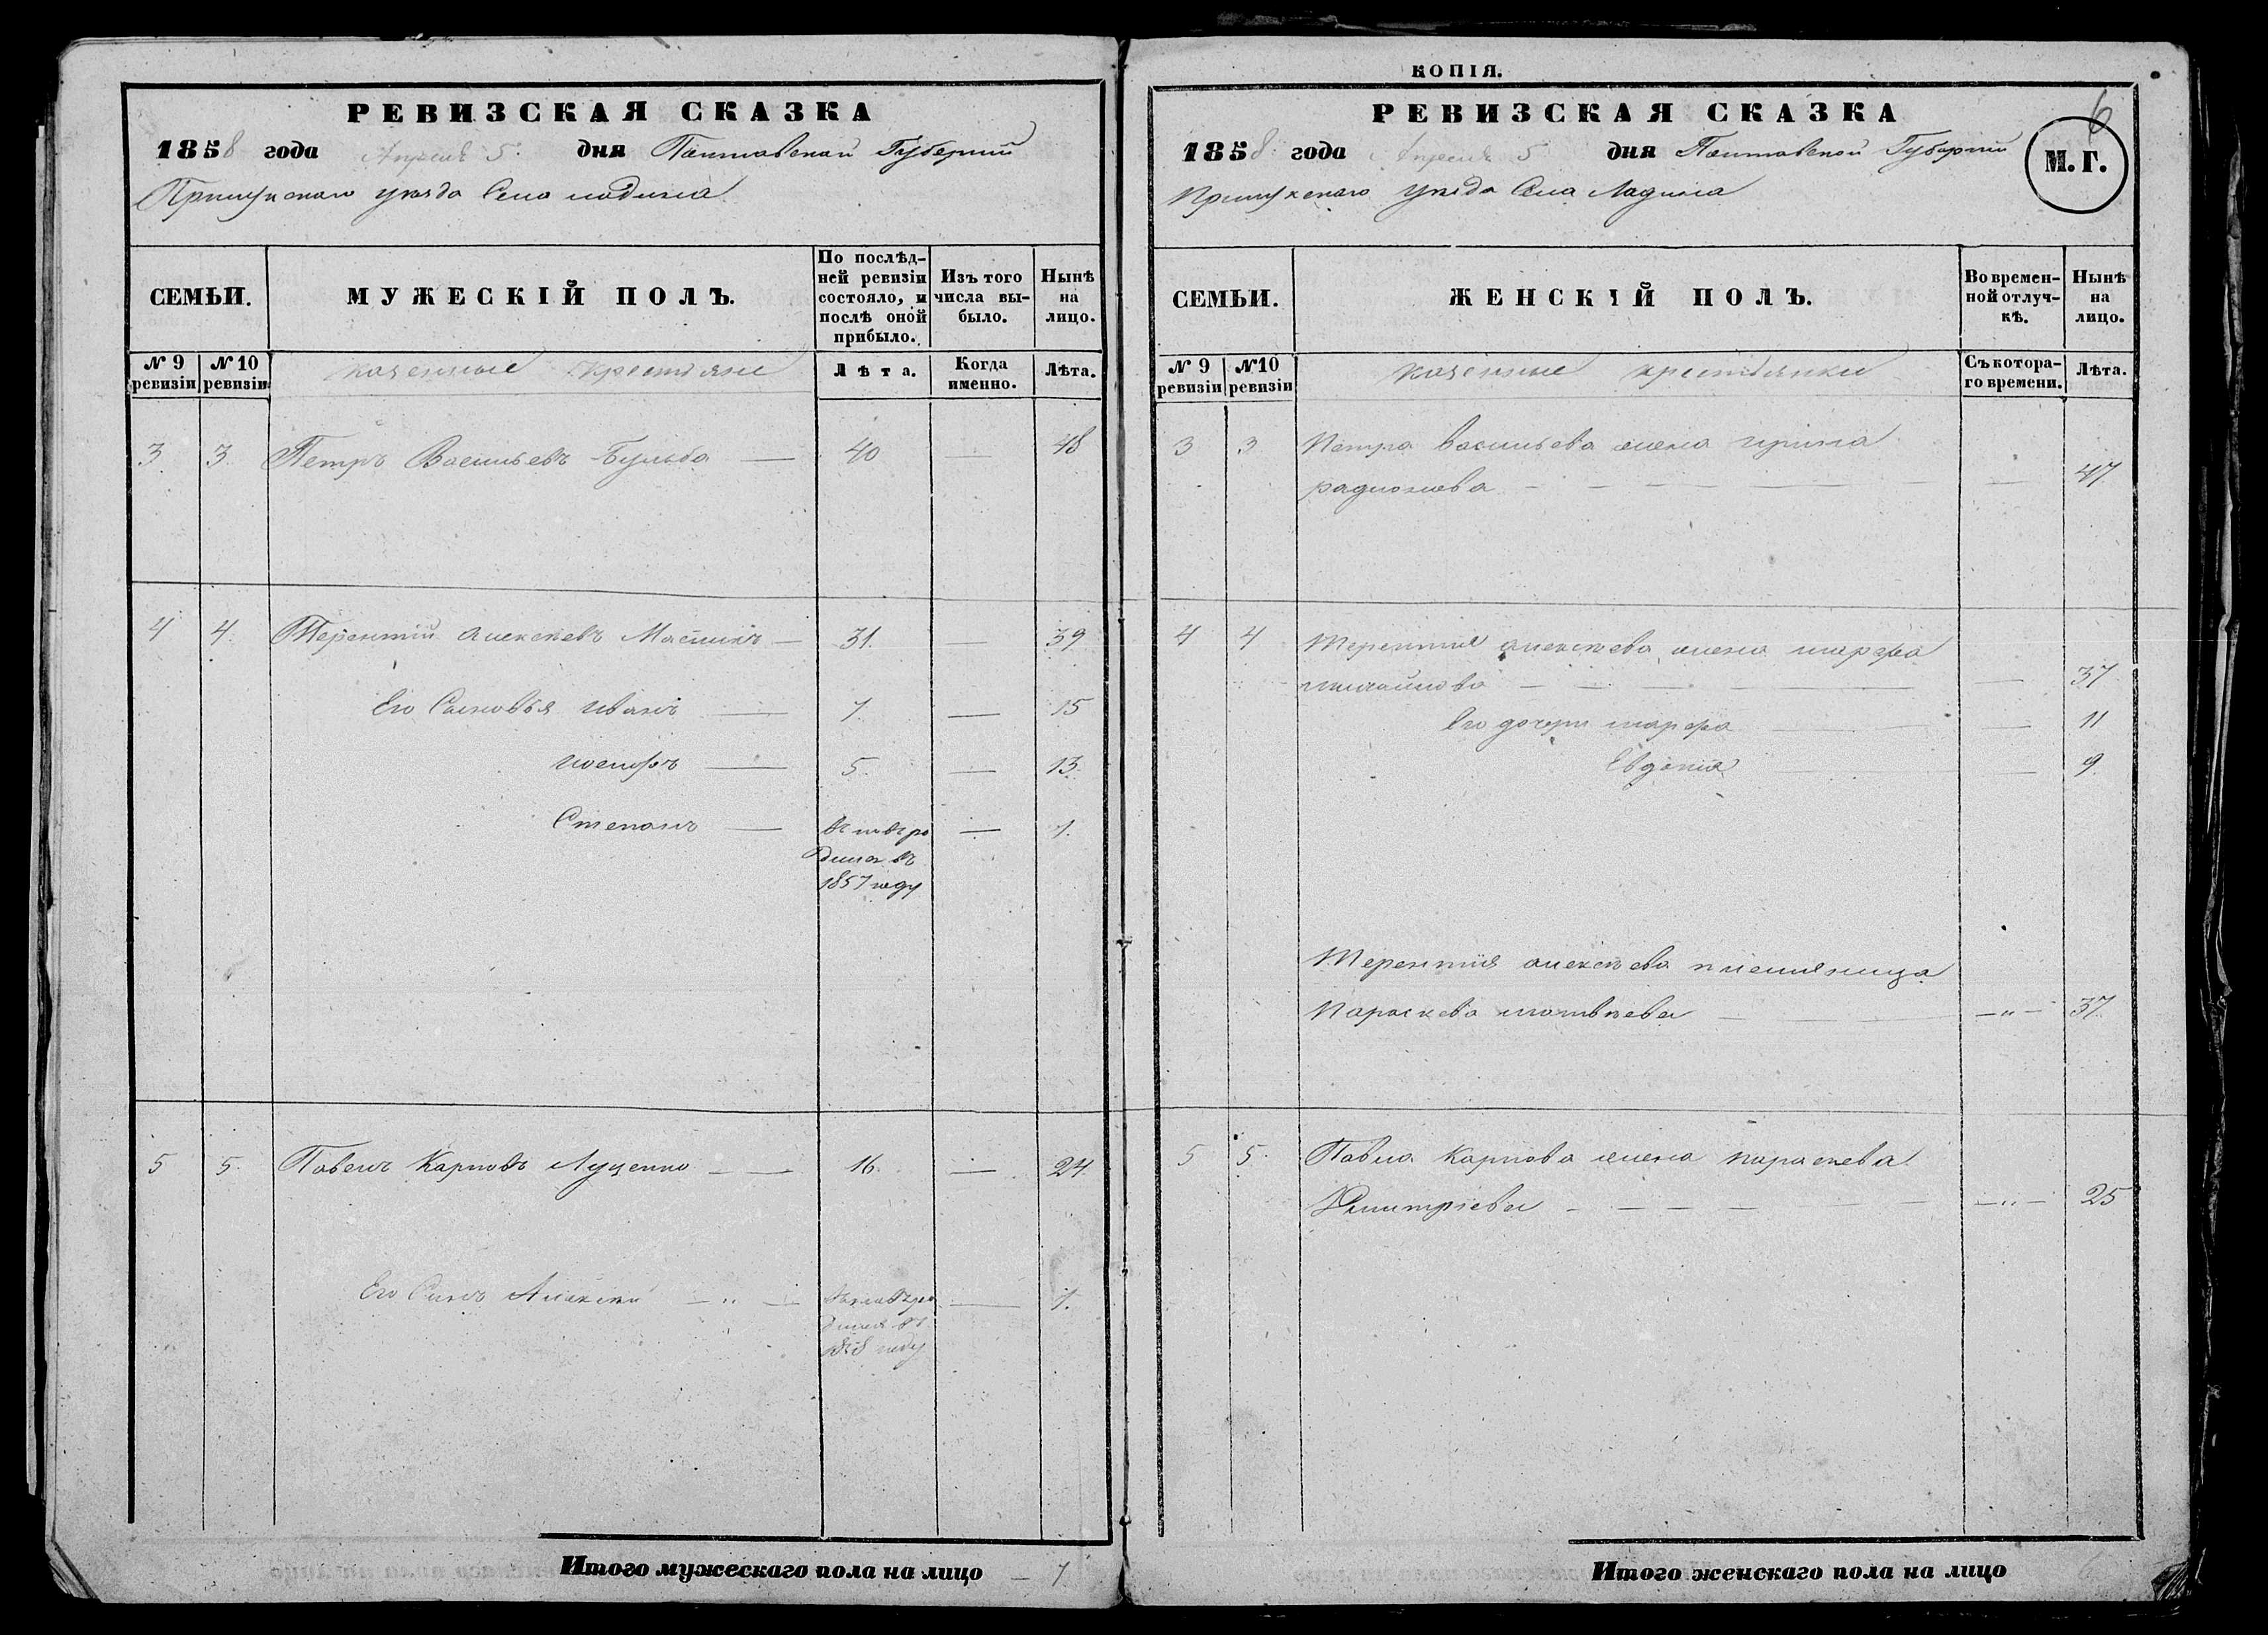 РЕВИЗСКАЯ СКАЗКА
1858 года Апреля 5 дня Полтавской Губерніи
Прилукскаго уезда Села Ладина
СЕМЬИ.
МУЖЕСКІЙ ПОЛЪ.
По послѣд-
ней ревизіи
состояло, и
послѣ оной
прибыло.
Изъ того
числа вы-
было.
Нынѣ
на
лицо.
№ 9
ревизіи
№ 10
ревизіи
казенные крестьяне
Лѣта.
Когда
именно.
Лѣта.
3. 3. Петръ Васильевъ Бульба — 40 — 48
4 4. Терентій Алексѣевъ — 31. — 39
Его Сыновья Иванъ — 7. — 15
Иосифъ — 5. — 13.
Степанъ — вновь ро — 1.
дился въ
1857 году
5 5. Павелъ Карповъ Луценко — 16. — 24
Его Сынъ Алексѣй — " — вновь ро — 1.
дился въ
году
Итого мужескаго пола на лицо — 7
КОПІЯ.
6
РЕВИЗСКАЯ СКАЗКА
1858 года Апреля 5 дня Полтавской Губерніи
М.Г.
Прилукскаго уезда Села Ладина
СЕМЬИ.
ЖЕНСКІЙ ПОЛЪ.
Во времен-
ной отлуч-
кѣ.
Нынѣ
на
лицо.
№ 9
ревизіи
№10
ревизіи
казенные крестьянки
Съ котора-
го времени.
Лѣта.
3 3 Петра Васильева жена Ирина
радионова — — 47
4 4 Терентия алексѣева жена марфа
михайлова — — 37
Его дочери марфа — — 11
Евдокія — — 9.
Терентия алексѣева племяница
Параскева матвѣева — — " — 37.
5 5. Павла Карпова жена параскева
Димитріева — — " — 25
Итого женскаго пола на лицо